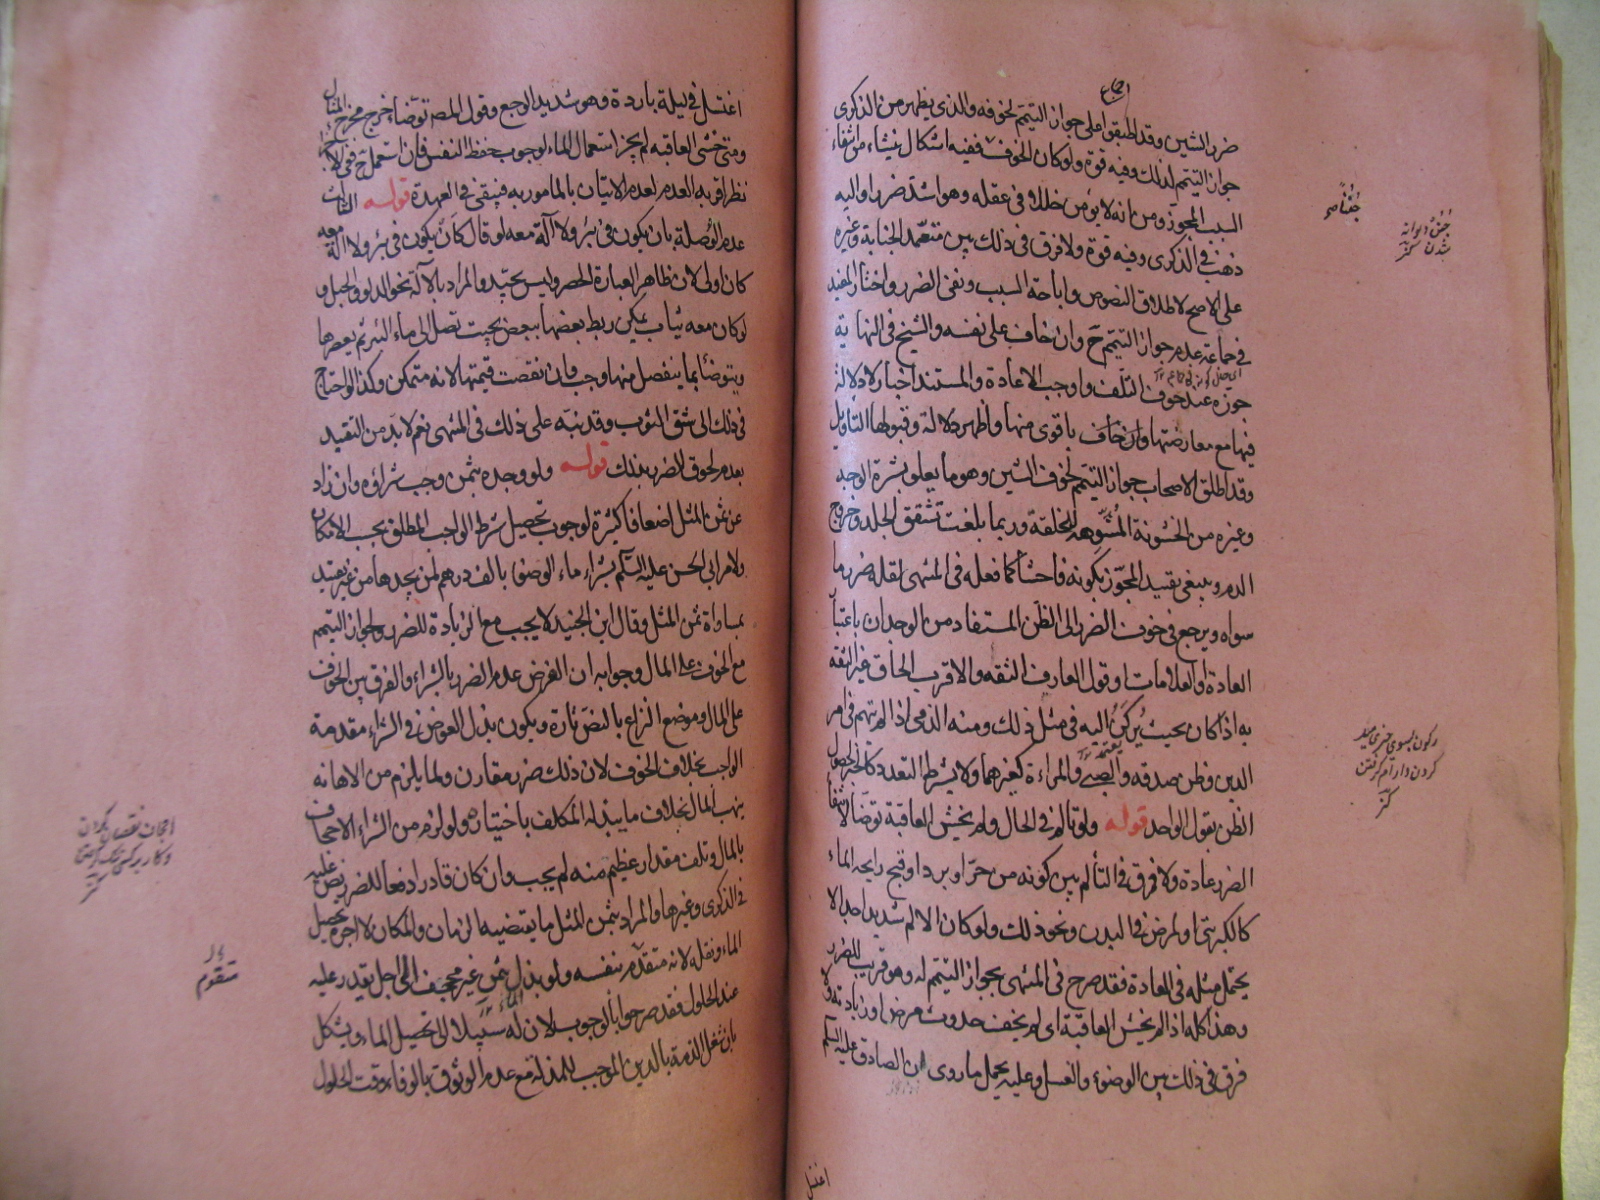 ضرر الشين وقد اطبقوا على جواز التيمم لخوفه والذي يظهر من الذكرى
جواز التيمم لذلك وفيه قوة ولو كان الخوف ففيه اشكال ينشاء من انتفاء
السبب المجوز ومن انه لا يؤمن خللا في عقله وهو اشد ضررا واليه
ذهب في الذكرى وفيه قوة ولا فرق في ذلك بين متعمد الجنابة وغيره
على الاصح لاطلاق النصوص واباحة السبب ونفى الضرر واختار المفيد
في جماعة عدم جواز التيمم ح وان خاف على نفسه والشيخ في النهاية
جوزه عند خوف التلف واوجب الاعادة والمستند اخبار لا دلالة
فيها مع معارضتها باقوى منها واظهر دلالة وقبولها التاويل
وقد اطلق الاصحاب جواز التيمم لخوف الشين وهو ما يعلو بشرة الوجه
وغيره من الخشونة المشوهه للخلقة وربما بلغت تشقق الجلد وخروج
الدم وينبغي تقييد المجوز بكونه فاحشا كما فعله في المنتهى لقلة ضرر ما
سواه ويرجع في خوف الضرر الى الظن المستفاد من الوجدان باعتبار
العادة او العلامات او قول العارف الثقه والاقرب الحاق غير الثقه
به اذا كان بحيث يركن اليه في مثل ذلك ومنه الذمي اذا لم يتهم في امر
الدين وظن صدقه والصبي والمراءة كغيرهما ولا يشترط التعدد كالخبر لحصول
الظن بقول الواحد قوله ولو تالم في الحال ولم يخش العاقبة توضا لانتفاء
الضرر عادة ولا فرق في التألم بين كونه من حر او برد او قبح رايحه الماء
كالكبريتي او لمرض في البدن ونحو ذلك ولو كان الالم شديدا جدا لا
يحتمل مثله في العادة فقد صرح في المنتهى بجواز التيمم له وهو قريب للضرر
وهذا كله اذا لم يخش العاقبة اى لم يخف حدوث مرض او زيادته ولا
فرق في ذلك بين الوضوء والغسل وعليه يحمل ما روى ان الصادق عليه السلم
اغتسل
اغتسل في ليلة باردة وهو شديد الوجع وقول المصه توضاء خرج مخرج المثال
ومتى خشى العاقبه لم يجز استعمال الماء لوجوب حفظ النفس فان استعمل ح ففي الاجزاء
نظر اقربه العدم لعدم الاتيان بالمامور به فيبقى في العهدة قوله الثالث
عدم الوصلة بان يكون في بئر ولا آلة معه لو قال كان يكون في بئر ولا آلة معه
كان اولى لان ظاهر العبارة الحصر وليس بجيد والمراد بالآلة نحو الدلو والحبل و
لو كان معه ثياب يمكن ربط بعضها ببعض بحيث تصل الى ماء البئر ثم يعصرها
ويتوضأ بما ينفصل منها وجب وان نقصت قيمتها لانه متمكن وكذا لو احتاج
في ذلك الى شق الثوب وقد نبه على ذلك في المنتهى نعم لا بد من التقييد
بعدم لحوق الضرر بذلك قوله ولو وجده بثمن وجب شراؤه وان زاد
عن ثمن المثل اضعافا كثيرة لوجوب تحصيل شرط الواجب المطلق بحسب الامكان
ولامر ابي الحسن عليه السلم بشراء ماء الوضوء بالف درهم لمن يجدها من غير تقييد
بمساواة ثمن المثل وقال ابن الجنيد لا يجب مع الزيادة للضرر ولجواز التيمم
مع الخوف على المال وجوابه ان الفرض عدم الضرر بالشراء والفرق بين الخوف
على المال وموضع النزاع بالنص تارة ويكون بذل العوض في الشراء مقدمة
الواجب بخلاف الخوف لان ذلك ضرر مقارن ولما يلزم من الاهانه
بنهب المال بخلاف ما يبذله المكلف باختياره ولو لزم من الشراء الاجحاف
بالمال وتلف مقدار عظيم منه لم يجب وان كان قادرا دفعا للضرر نص عليه
في الذكرى وغيرها والمراد بثمن المثل ما يقتضيه الزمان والمكان لا اجرة تحصيل
الماء ونقله لانه متقدم بنفسه ولو بذل بثمن غير مجحف الى اجل يقدر عليه
عند الحلول فقد صرحوا بالوجوب لان له سبيلا الى تحصيل الماء ويشكل
بان شغل الذمة بالدين الموجب للمذلة مع عدم الوثوق بالوفاء وقت الحلول
جنن ديوانه
شدن كنز
ركون بسوي چيزي ميل
كردن و ارام گرفتن
كنز
اجحاف نقصان كردن
كنز
متقوم